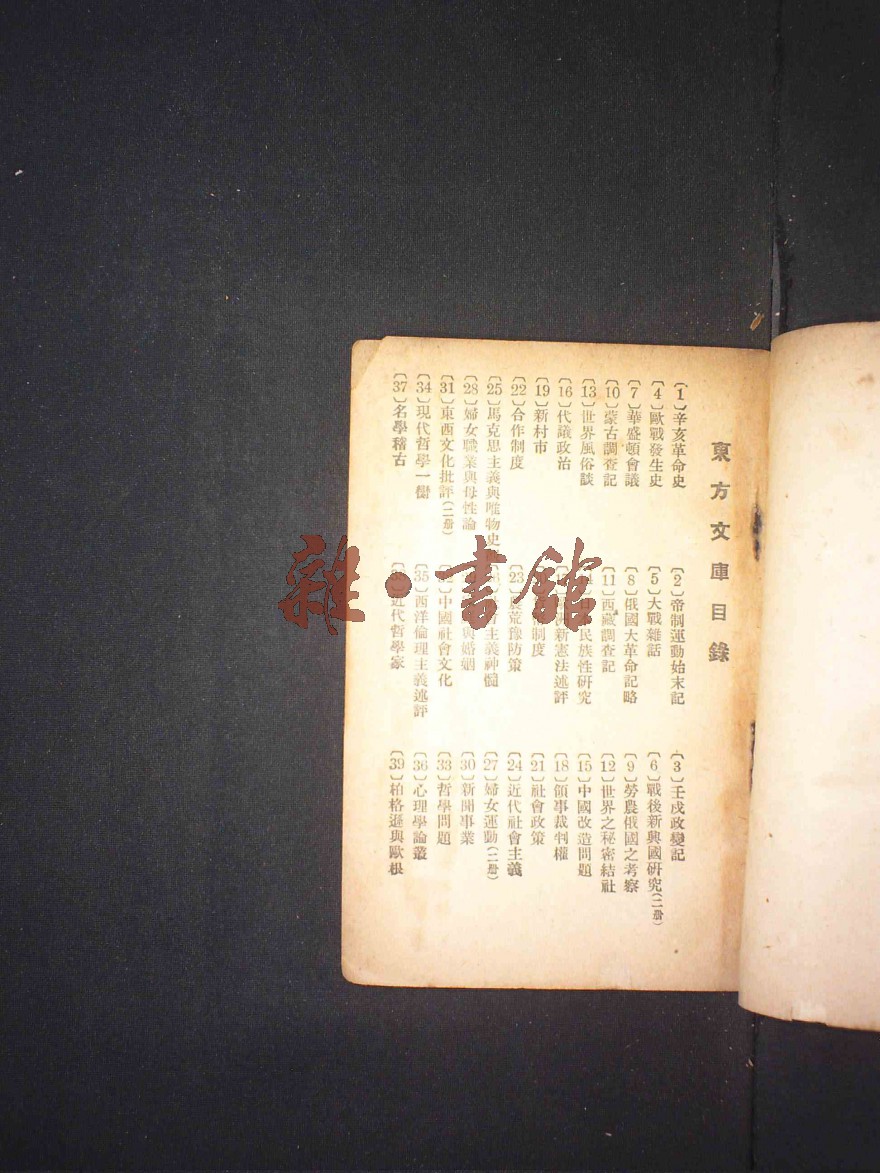 東方文庫目錄
〔1〕辛亥革命史 〔2〕帝制運動始末記 〔3〕壬戌政變記
〔4〕歐戰發生史 〔5〕大戰雜話 〔6〕戰後新興國研究(二册)
〔7〕華盛頓會議 〔8〕俄國大革命記略 〔9〕勞農俄國之考察
〔10〕蒙古調查記 〔11〕西藏調查記 〔12〕世界之秘密結社
〔13〕世界風俗談 民族性研究 〔15〕中國改造問題
〔16〕代議政治 新憲法述評 〔18〕領事裁判權
〔19〕新村市 制度 〔21〕社會政策
〔22〕合作制度 〔23〕農荒豫防策 〔24〕近代社會主義
〔25〕馬克思主義與唯物史 主義神髓 〔27〕婦女運動(二册)
〔28〕婦女職業與母性論 與婚姻 〔30〕新聞事業
〔31〕東西文化批評(二册) 中國社會文化 〔33〕哲學問題
〔34〕現代哲學一臠 〔35〕西洋倫理主義述評 〔36〕心理學論叢
〔37〕名學稽古 近代哲學家 〔39〕柏格遜與歐根
雜·書館